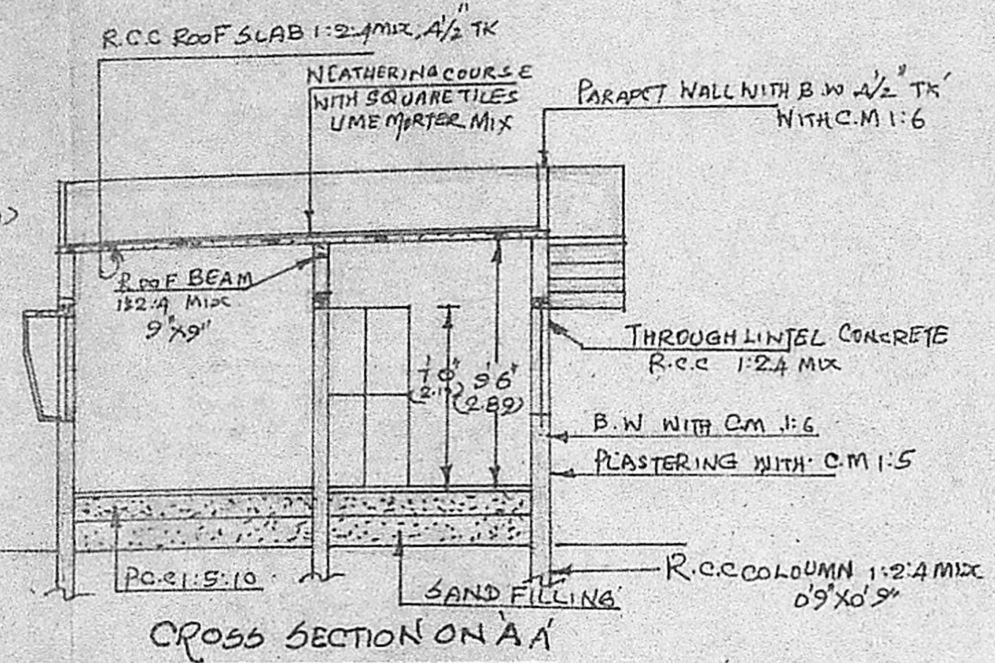 R.C.C ROOF SLAB 1:2:4 MIX, 4½" TK
WEATHERING COURSE
WITH SQUARE TILES
LIME MORTER MIX
PARAPET WALL WITH B.W 4½" TK
WITH C.M 1:6
ROOF BEAM
1:2:4 MIX
9"X9"
7'0"
9'6"
(2.89)
THROUGH LINTEL CONCRETE
R.C.C 1:2:4 MIX
B.W WITH C.M 1:6
PLASTERING WITH C.M 1:5
P.C.C 1:5:10
SAND FILLING
R.C.C COLOUMN 1:2:4 MIX
0'9"X0'9"
CROSS SECTION ON 'A A'